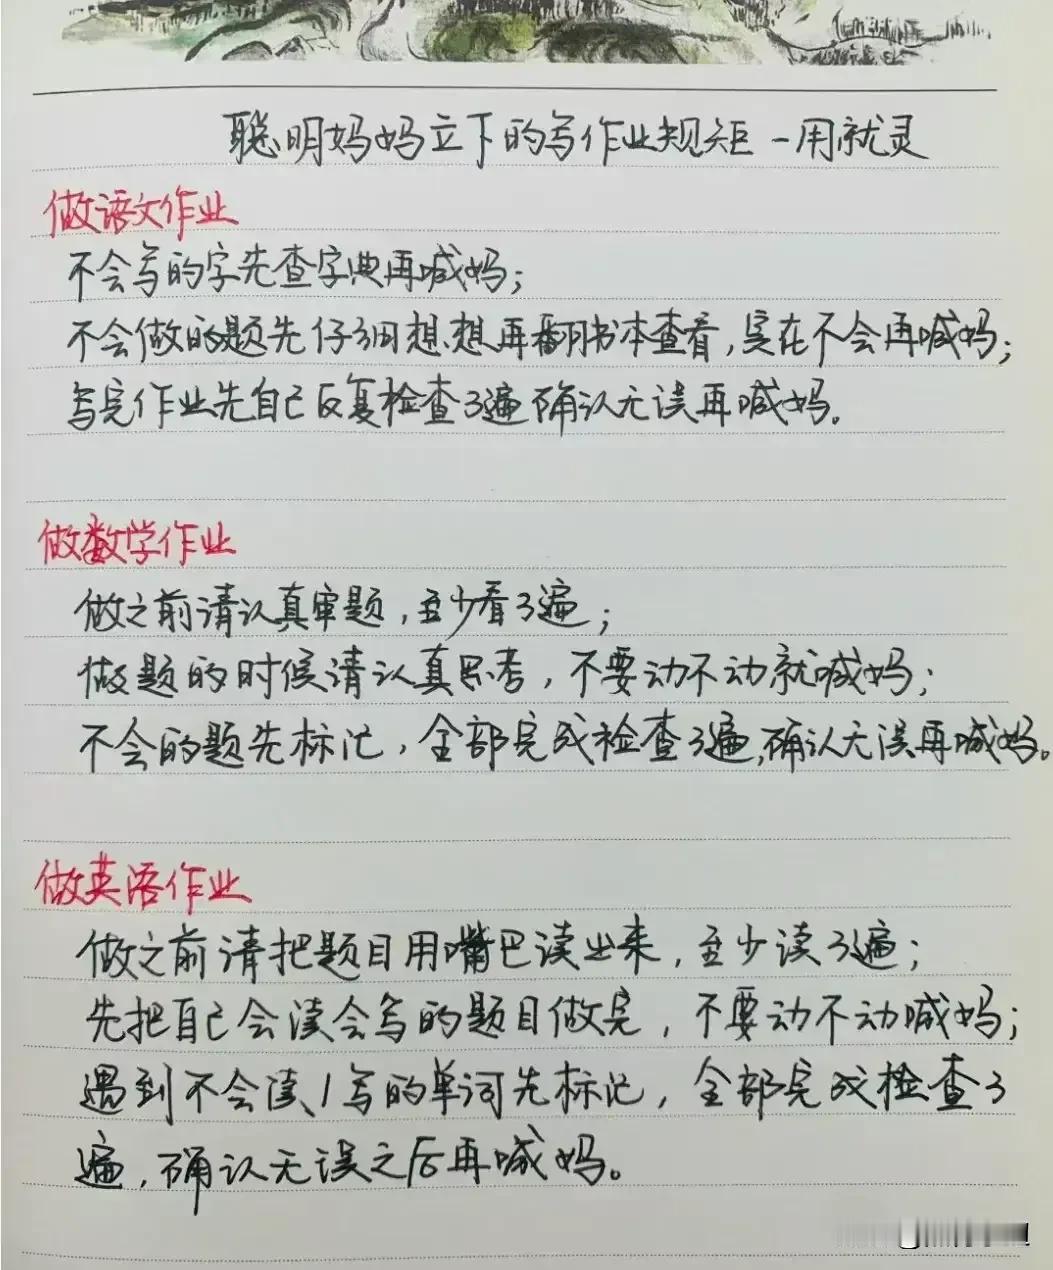 聪明妈妈立下的写作业规矩一用就灵
做语文作业
不会写的字先查字典再喊妈；
不会做的题先仔细想想再翻书本查看，实在不会再喊妈；
写完作业先自己反复检查3遍确认无误再喊妈。
做数学作业
做之前请认真审题，至少看3遍；
做题的时候请认真思考，不要动不动就喊妈；
不会的题先标记，全部完成检查3遍，确认无误再喊妈。
做英语作业
做之前请把题目用嘴巴读出来，至少读3遍；
先把自己会读会写的题目做完，不要动不动喊妈；
遇到不会读、/写的单词先标记，全部完成检查3
遍，确认无误之后再喊妈。